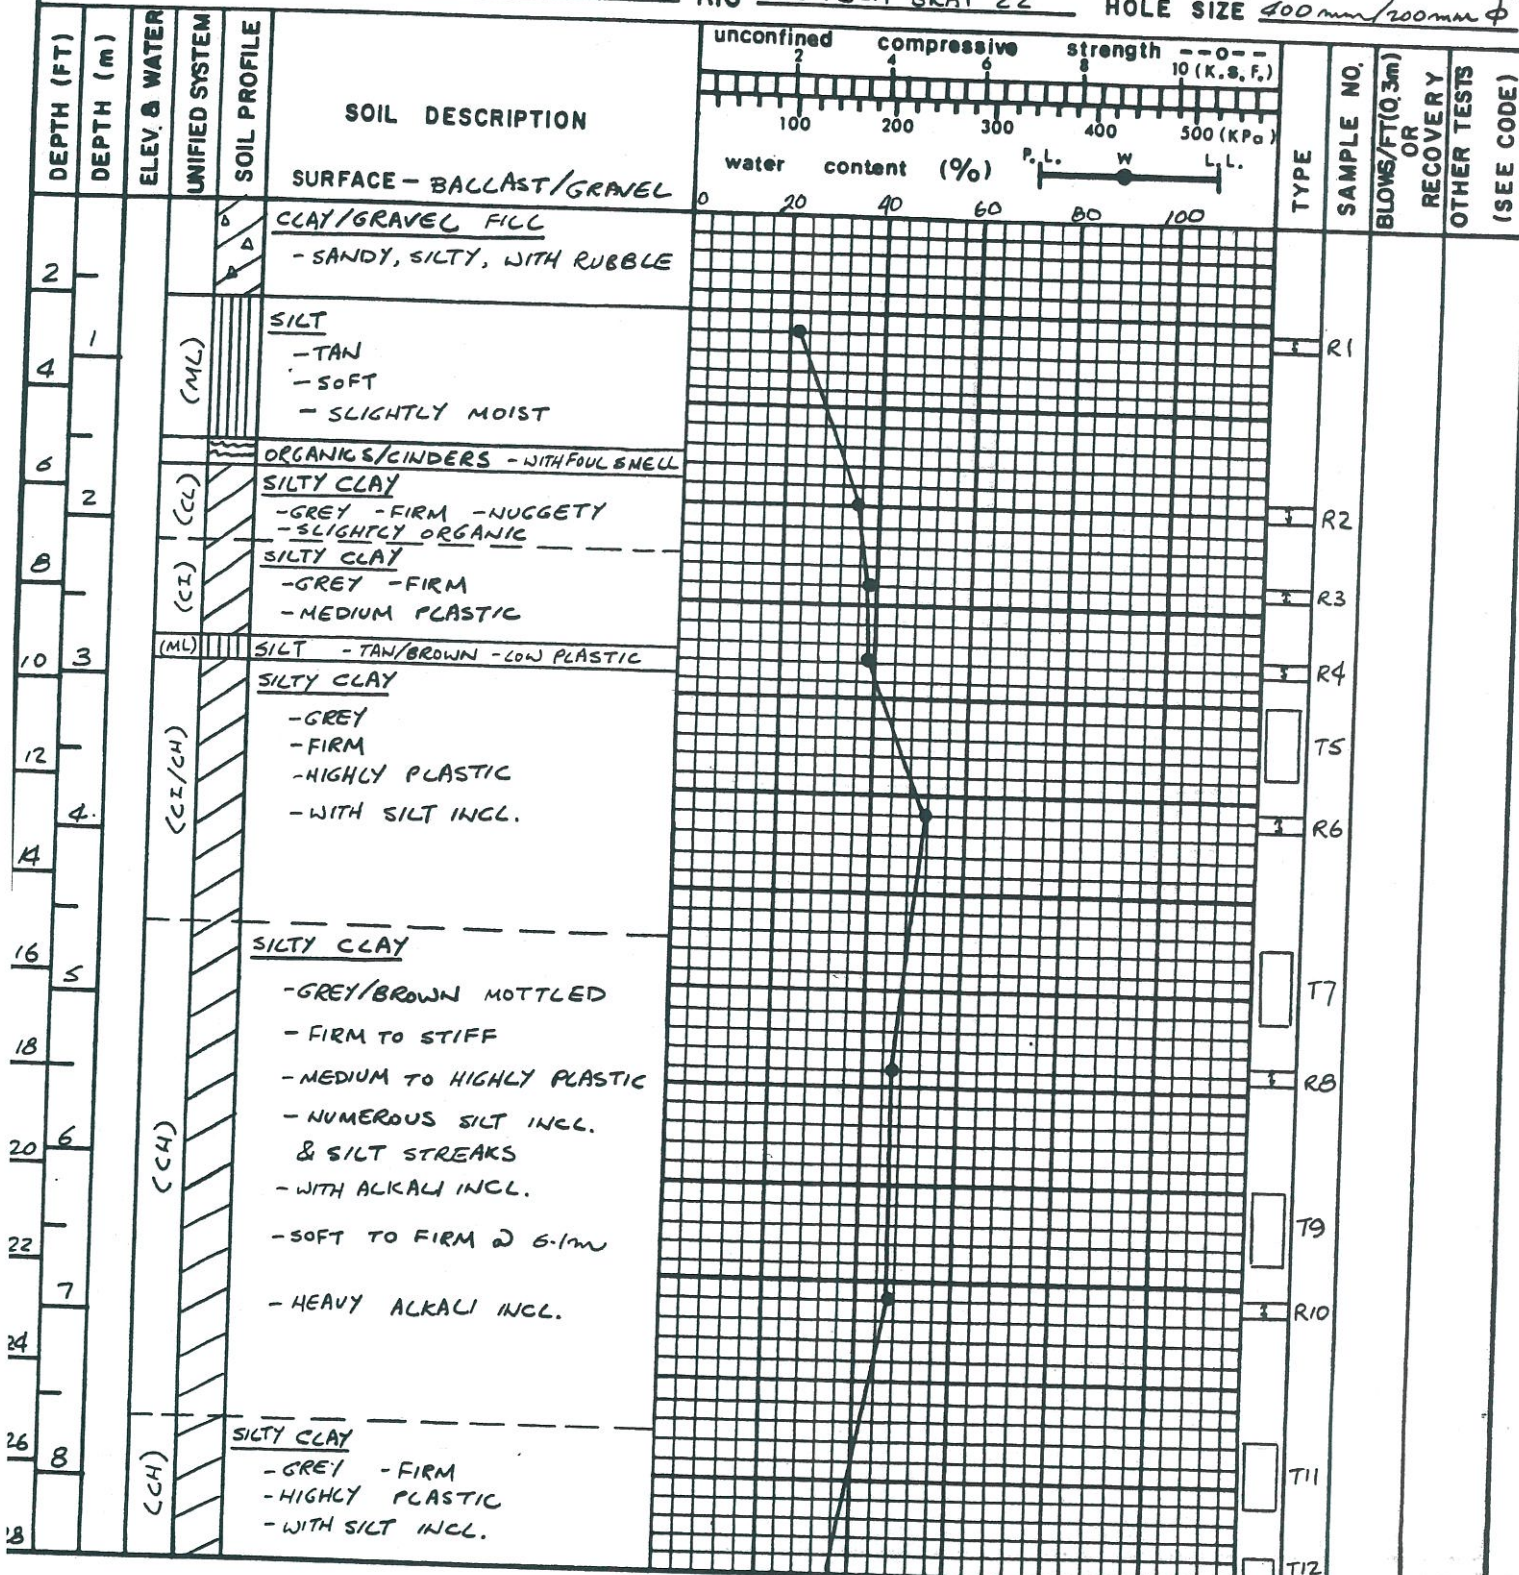 HOLE SIZE 400mm/200mm ϕ
DEPTH (FT)
DEPTH (m)
ELEV. & WATER
UNIFIED SYSTEM
SOIL PROFILE
SOIL DESCRIPTION
SURFACE - BALLAST/GRAVEL
unconfined compressive strength --o--
2 4 6 8 10 (K.S.F.)
100 200 300 400 500 (KPa)
water content (%) P.L. W L.L.
0 20 40 60 80 100
TYPE
SAMPLE NO.
BLOWS/FT(0.3m)
OR
RECOVERY
OTHER TESTS
(SEE CODE)
CLAY/GRAVEL FILL
- SANDY, SILTY, WITH RUBBLE
2
1
4
(ML)
SILT
- TAN
- SOFT
- SLIGHTLY MOIST
R1
6
ORGANICS/CINDERS - WITH FOUL SMELL
2
(CL)
SILTY CLAY
- GREY - FIRM - NUGGETY
- SLIGHTLY ORGANIC
R2
8
(CI)
SILTY CLAY
- GREY - FIRM
- MEDIUM PLASTIC
R3
10 3
(ML)
SILT - TAN/BROWN - LOW PLASTIC
R4
12
4.
14
(CI/CH)
SILTY CLAY
- GREY
- FIRM
- HIGHLY PLASTIC
- WITH SILT INCL.
T5
R6
16
5
18
20 6
22
7
24
(CH)
SILTY CLAY
- GREY/BROWN MOTTLED
- FIRM TO STIFF
- MEDIUM TO HIGHLY PLASTIC
- NUMEROUS SILT INCL.
& SILT STREAKS
- WITH ALKALI INCL.
- SOFT TO FIRM @ 6.1m
- HEAVY ALKALI INCL.
T7
R8
T9
R10
26
8
(CH)
SILTY CLAY
- GREY - FIRM
- HIGHLY PLASTIC
- WITH SILT INCL.
T11
T12